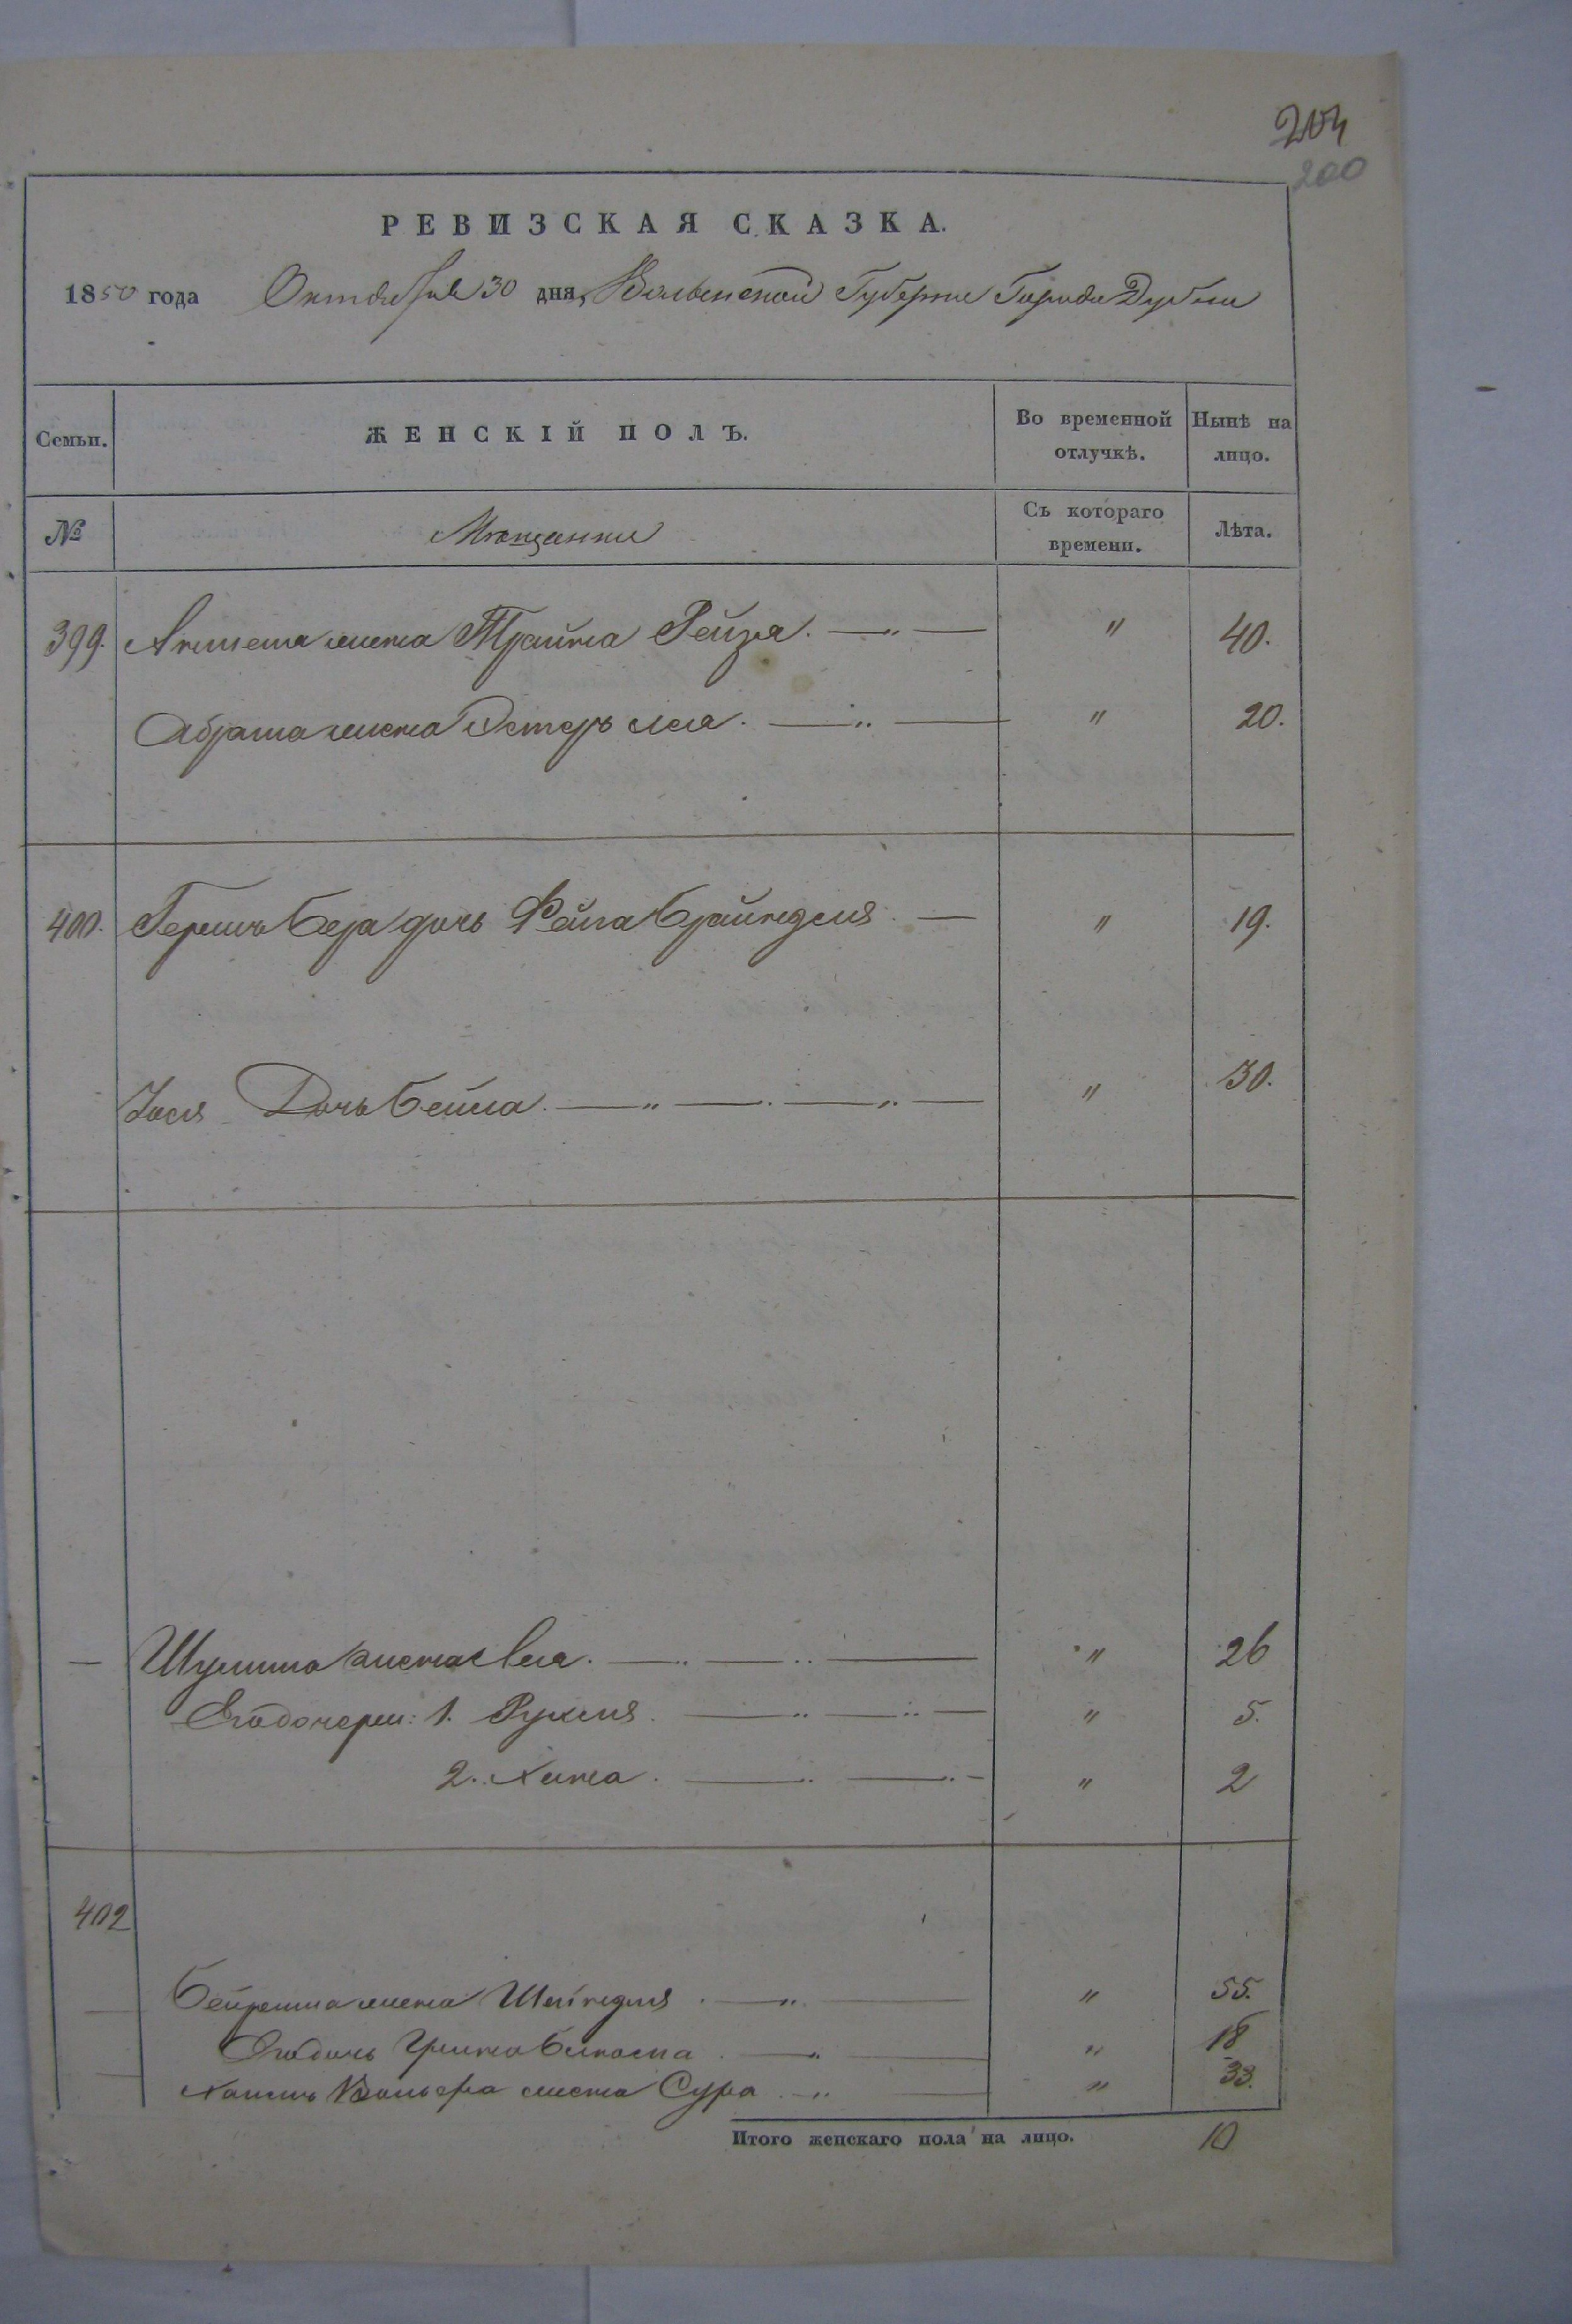 204
200
РЕВИЗСКАЯ СКАЗКА.
1850 года Октября 30 дня, Волынской Губернии Города Дубна
Семьи. ЖЕНСКІЙ ПОЛЪ. Во временной отлучкѣ. Нынѣ на лицо.
№ Мѣщанки Съ котораго времени. Лѣта.
399. жена Трайна Рейзя. " 40.
Абрама жена Эстеръ Лея. " 20.
400. Гершъ Бера дочь Фейга Брайндля " 19.
Іося Дочь Бейла. " 30.
— Шулима жена Лея. " 26
Его дочери: 1. Рухля. " 5.
2. Хана. " 2
402
жена Шейндля " 55.
Его дочь " 18
Вольфа жена Сура " 33.
Итого женскаго пола на лицо. 10